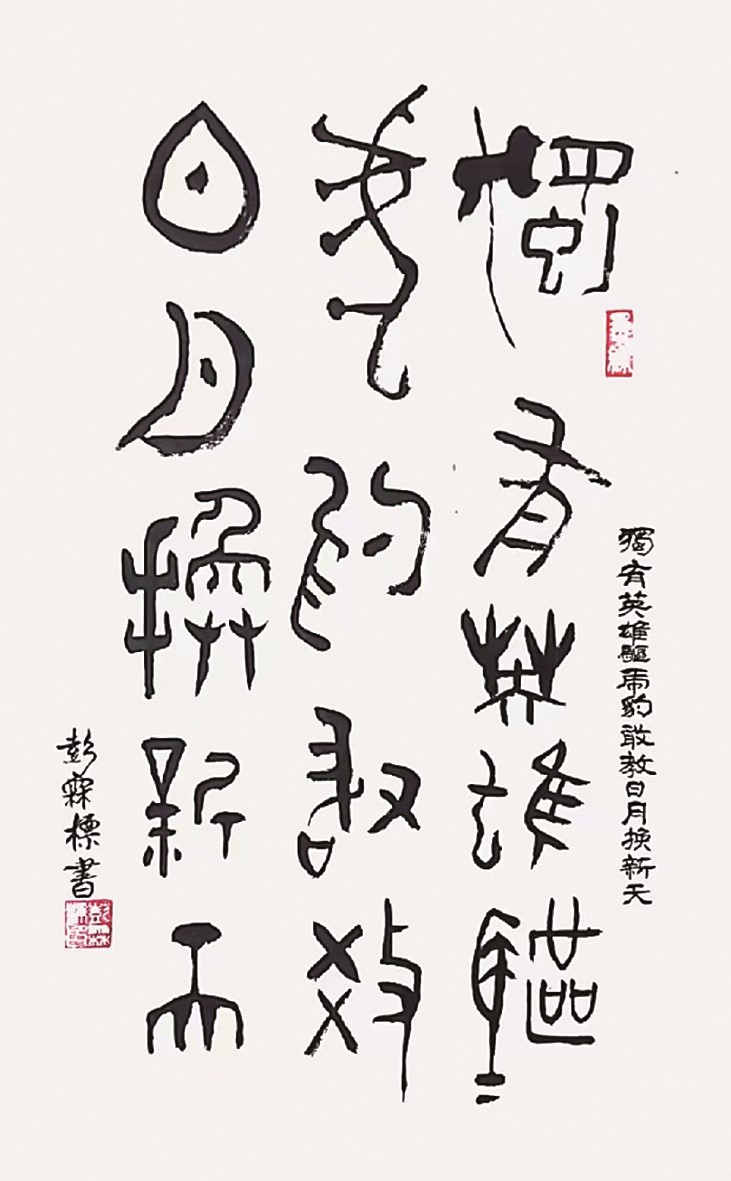 獨有英雄驅虎豹敢教日月换新天
獨有英雄驅
虎豹敢教
日月換新天
彭霖標書